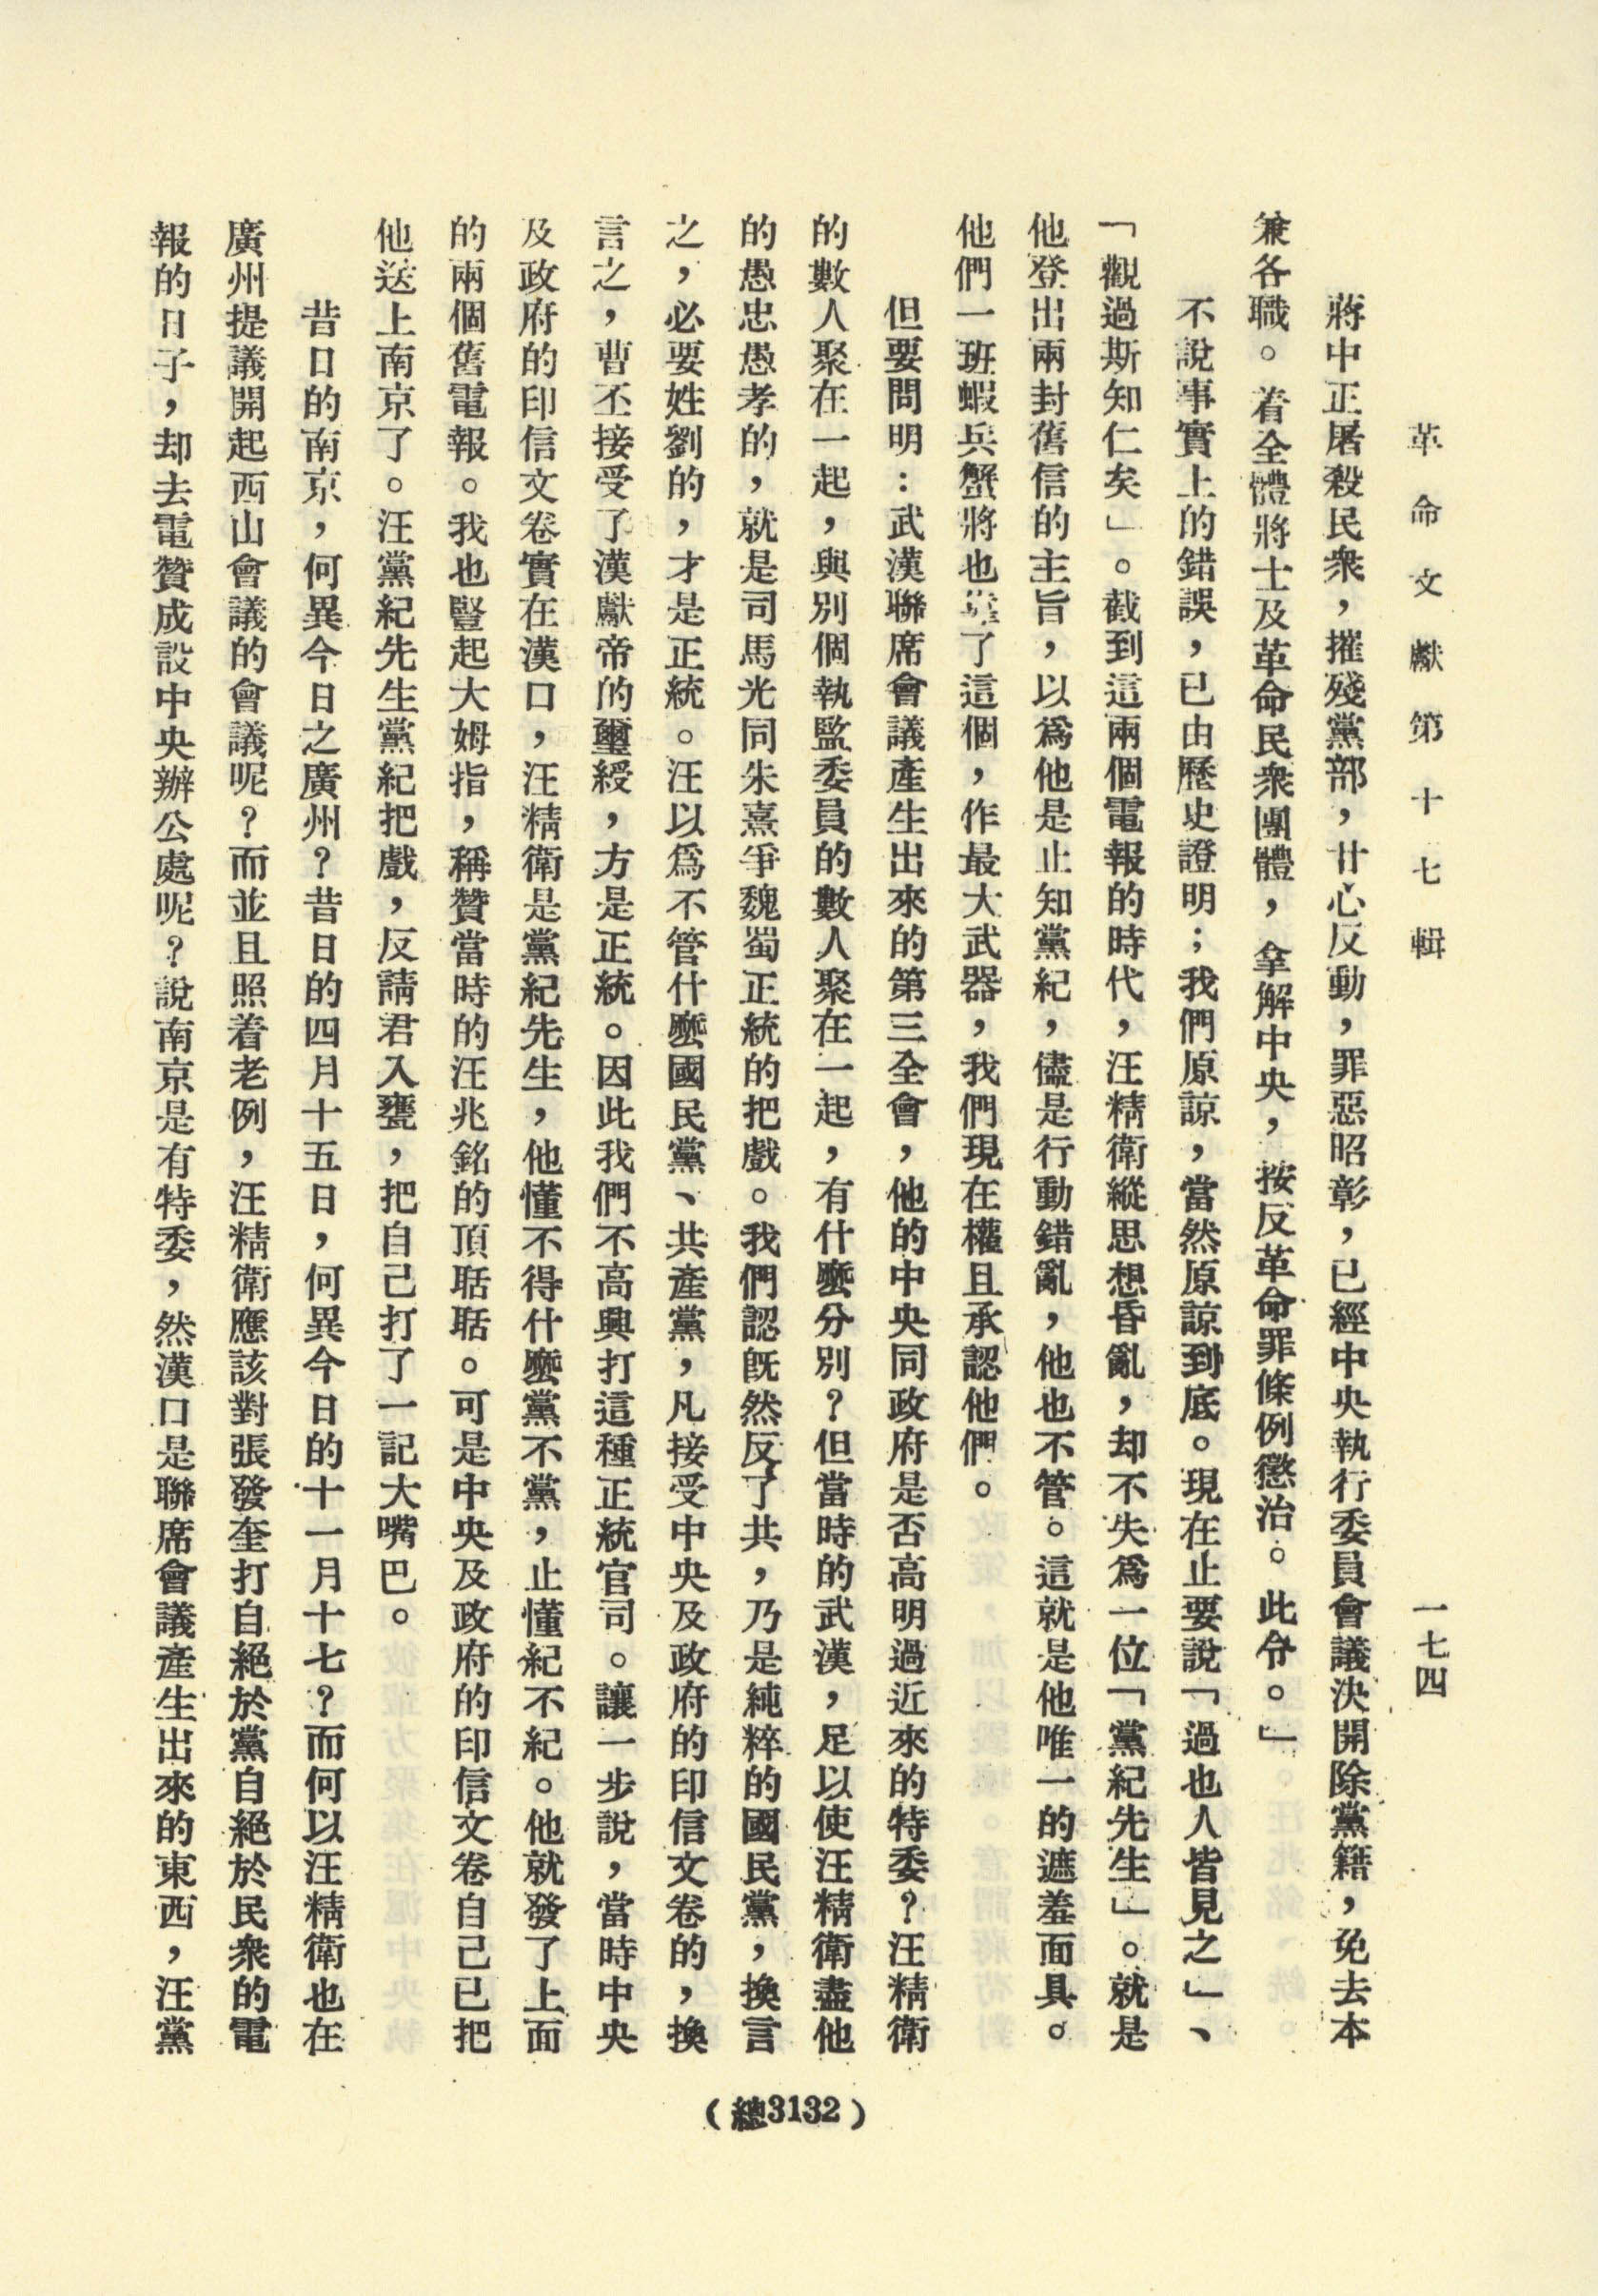 革命文獻第十七輯
一七四
蔣中正屠殺民衆，摧殘黨部，甘心反動，罪惡昭彰，已經中央執行委員會議決開除黨籍，免去本
兼各職。着全體將士及革命民衆團體，拿解中央，按反革命罪條例懲治。此令。」
不說事實上的錯誤，已由歷史證明；我們原諒，當然原諒到底。現在止要說「過也人皆見之」、
「觀過斯知仁矣」。截到這兩個電報的時代，汪精衛縱思想昏亂，却不失爲一位「黨紀先生」。就是
他登出兩封舊信的主旨，以爲他是止知黨紀，儘是行動錯亂，他也不管。這就是他唯一的遮羞面具。
他們一班蝦兵蟹將也靠了這個，作最大武器，我們現在權且承認他們。
但要問明：武漢聯席會議產生出來的第三全會，他的中央同政府是否高明過近來的特委？汪精衛
的數人聚在一起，與別個執監委員的數人聚在一起，有什麼分別？但當時的武漢，足以使汪精衛盡他
的愚忠愚孝的，就是司馬光同朱熹爭魏蜀正統的把戲。我們認旣然反了共，乃是純粹的國民黨，換言
之，必要姓劉的，才是正統。汪以爲不管什麼國民黨、共產黨，凡接受中央及政府的印信文卷的，換
言之，曹丕接受了漢獻帝的璽綬，方是正統。因此我們不高興打這種正統官司。讓一步說，當時中央
及政府的印信文卷實在漢口，汪精衛是黨紀先生，他懂不得什麼黨不黨，止懂紀不紀。他就發了上面
的兩個舊電報。我也豎起大姆指，稱贊當時的汪兆銘的頂聒聒。可是中央及政府的印信文卷自己已把
他送上南京了。汪黨紀先生黨紀把戲，反請君入甕，把自己打了一記大嘴巴。
昔日的南京，何異今日之廣州？昔日的四月十五日，何異今日的十一月十七？而何以汪精衛也在
廣州提議開起西山會議的會議呢？而並且照着老例，汪精衛應該對張發奎打自絕於黨自絕於民衆的電
報的日子，却去電贊成設中央辦公處呢？說南京是有特委，然漢口是聯席會議產生出來的東西，汪黨
（總3132）